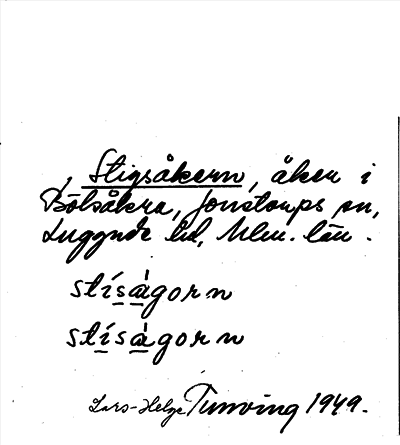 Stigsåkern, åker i
Bölsåkra, Jonstorps sn,
Luggude hd, Mlm. län.
stísàgorn
stísàgorn
Lars-Helge Tunving 1949.